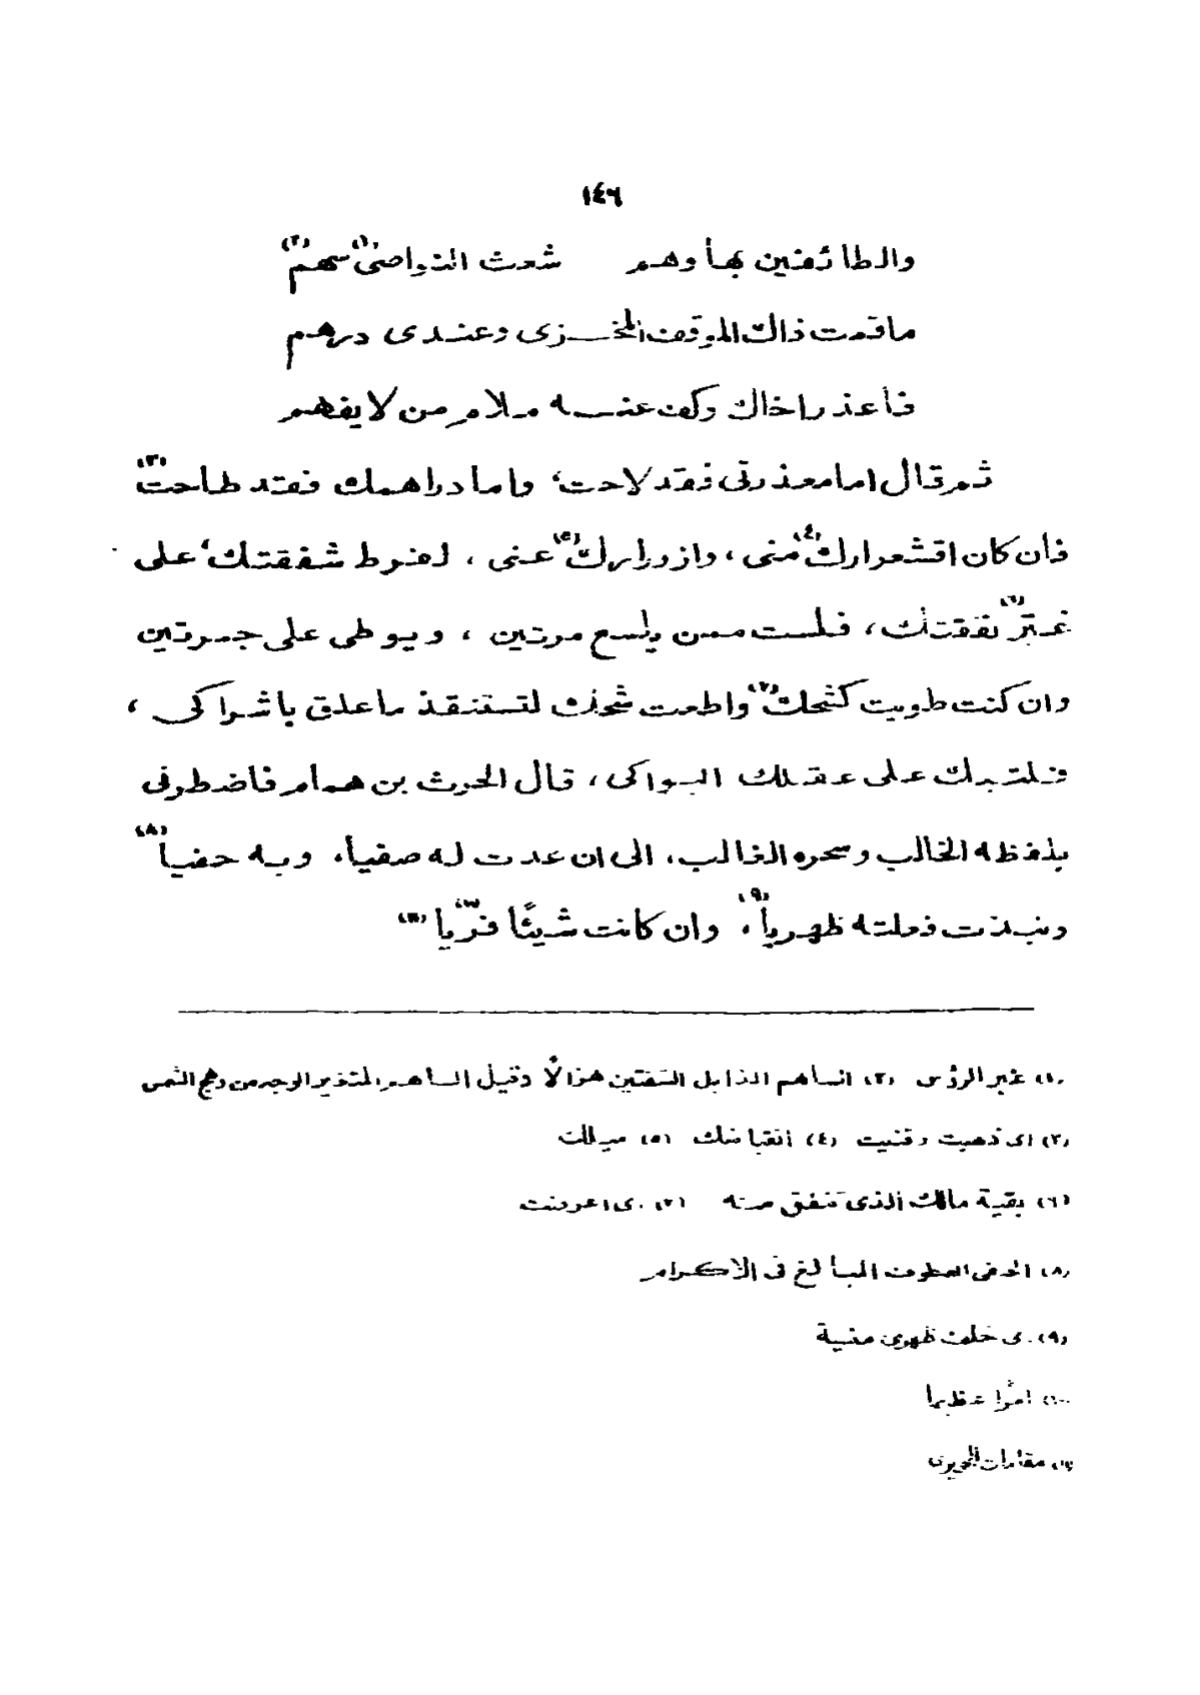 ١٤٦
والطائفين بها وهم شعث النواصى(١) سهم(٢)
ماقمت ذاك الموقف المخـزى وعندى درهم
فأعذر اخاك وكف عنـه ملام من لا يفهم
ثم قال اما معذرتى فقد لاحت، واما دراهمك فقد طاحت(٣)
فأن كان اقشعرارك(٤) منى، وازورارك(٥) عنى، لفرط شفقتك، على
غبّر(٦) نفقتك، فلست ممن يلسع مرتين، ويوطى على جمرتين
وان كنت طويت كشحك(٧) واطعت شحك لتستنقذ ما علق باشراكى،
فلتبك على عقلك البواكى، قال الحرث بن همام فاضطرنى
بلفظه الخالب وسحره الغالب، الى ان عدت له صفيا، وبه حفيا(٨)
ونبذت فعلته ظهريا(٩)، وان كانت شيئًا فرّيا(١٠) (١١)
(١) غبر الرؤس (٢) الساهم الذابل الشفتين هزالًا وقيل الساهم المتغير الوجه من وهج الشمس
(٣) اى ذهبت وفنيت (٤) انقباضك (٥) ميلك
(٦) بقية مالك الذى تنفق منه (٧) اى اعرضت
(٨) الحفى العطوف المبالغ فى الاكـرام
(٩) اى خلف ظهرى منسية
(١٠) امرًا عظيما
(١١) مقامات الحريرى